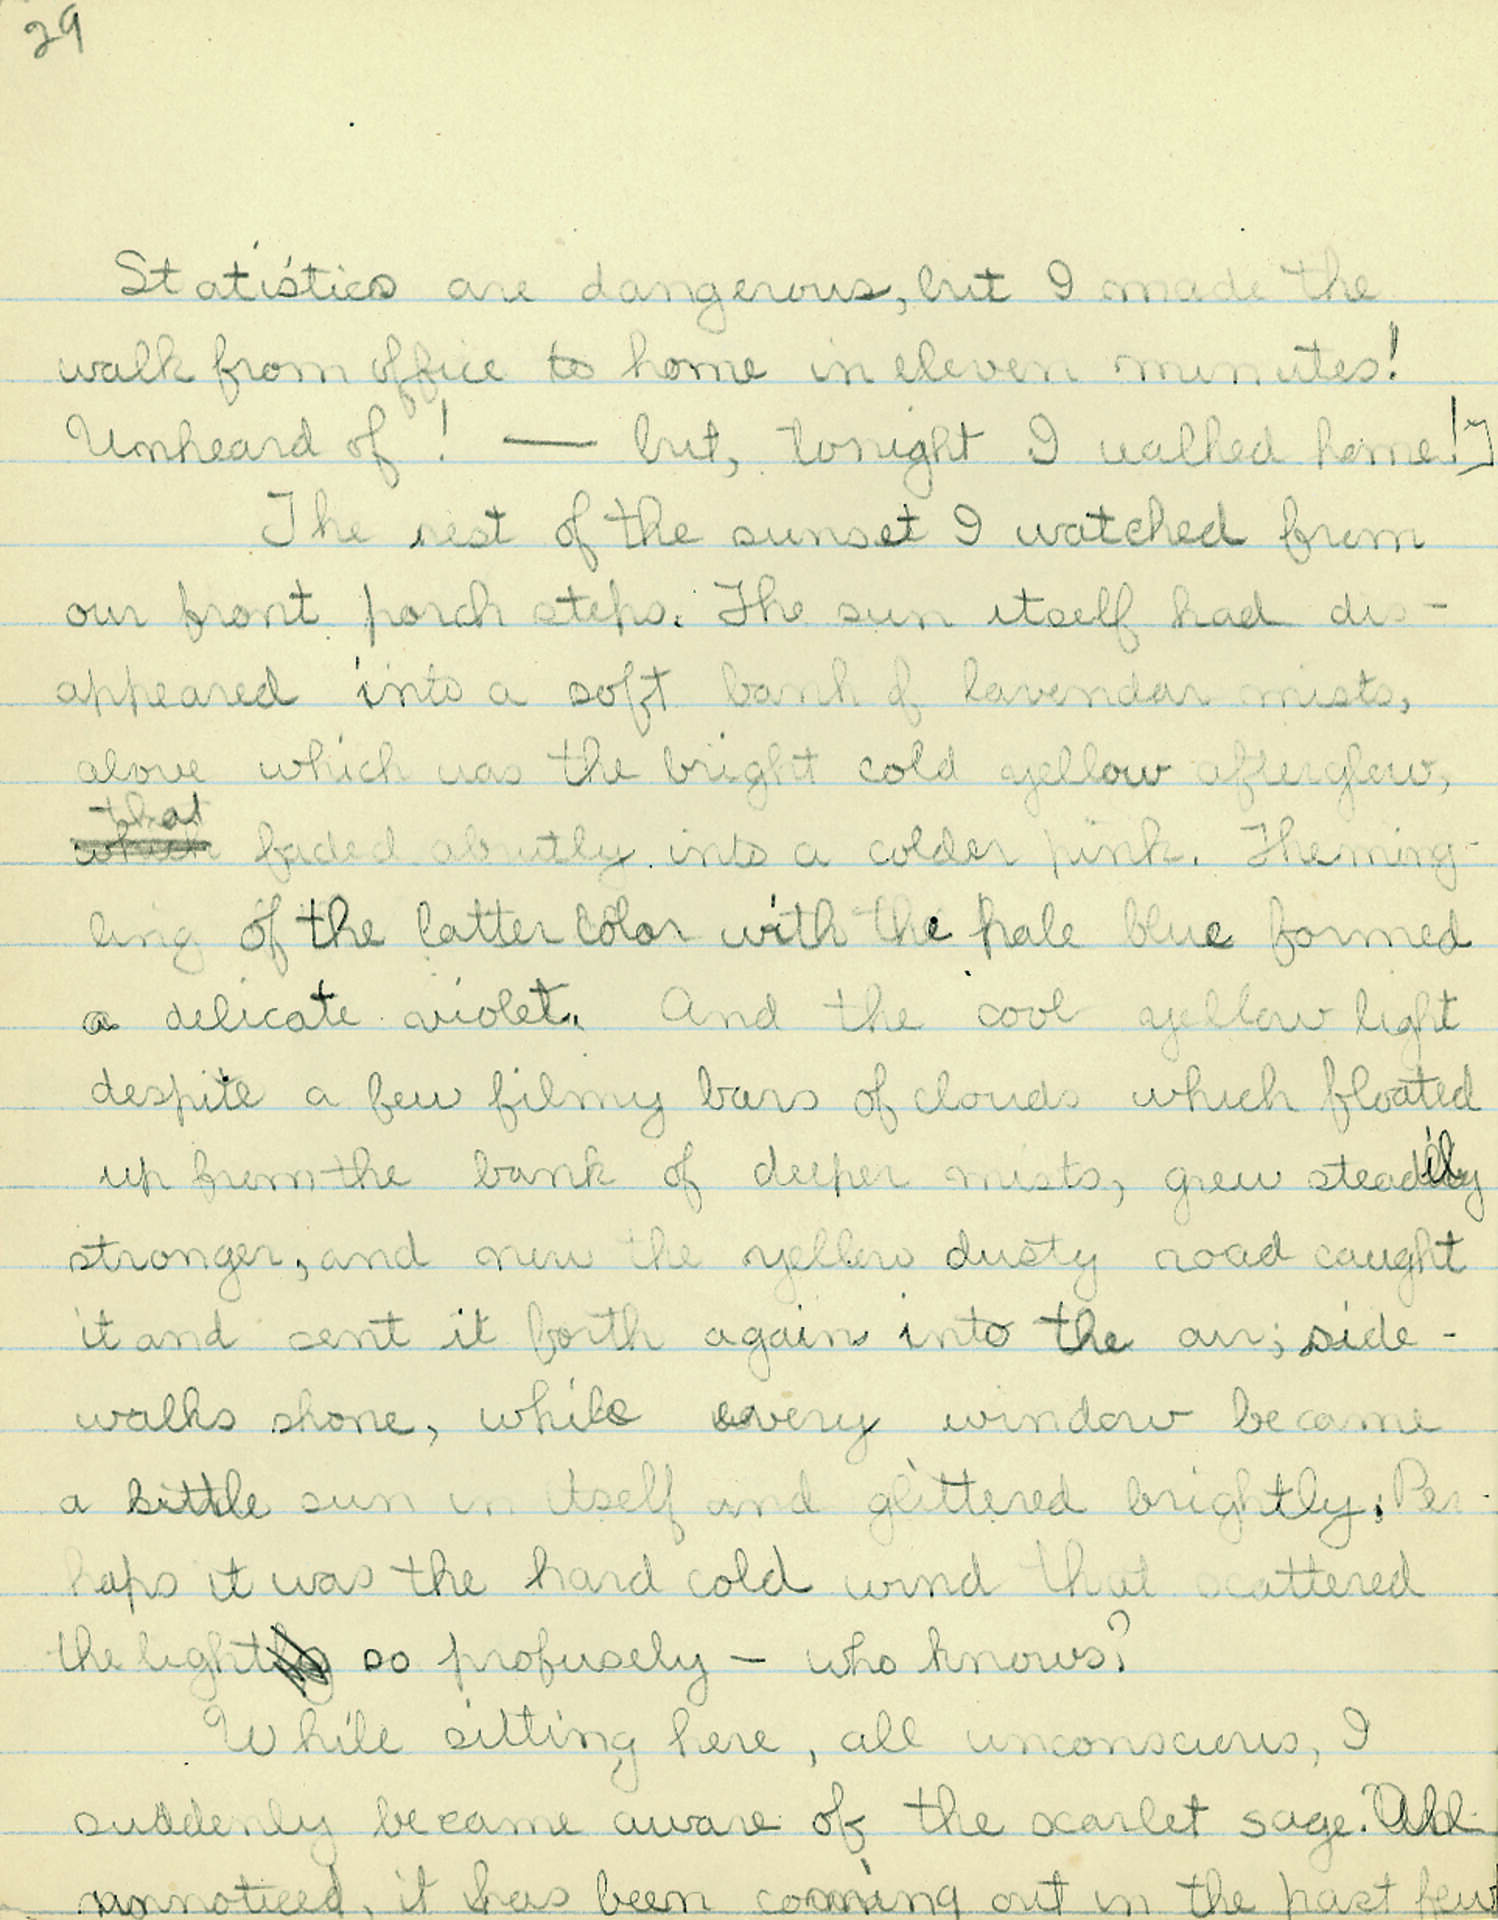 29
Statistics are dangerous, but I made the
walk from office to home in eleven minutes!
Unheard of! — but, tonight I walked home!]
The rest of the sunset I watched from
our front porch steps. The sun itself had dis-
appeared into a soft bank of lavendar mists,
above which was the bright cold yellow afterglow,
that
which faded abrutly into a colder pink. The ming-
ling of the latter color with the pale blue formed
a delicate violet. And the cool yellow light
despite a few filmy bars of clouds which floated
up from the bank of deeper mists, grew steadily
stronger, and now the yellow dusty road caught
it and cent it forth again into the air; side-
walks shone, while every window became
a little sun in itself and glittered brightly; Per-
haps it was the hard cold wind that scattered
the light so profusely – who knows?
While sitting here, all unconscious, I
suddenly became aware of the scarlet sage. All
unnoticed, it has been coming out in the past few